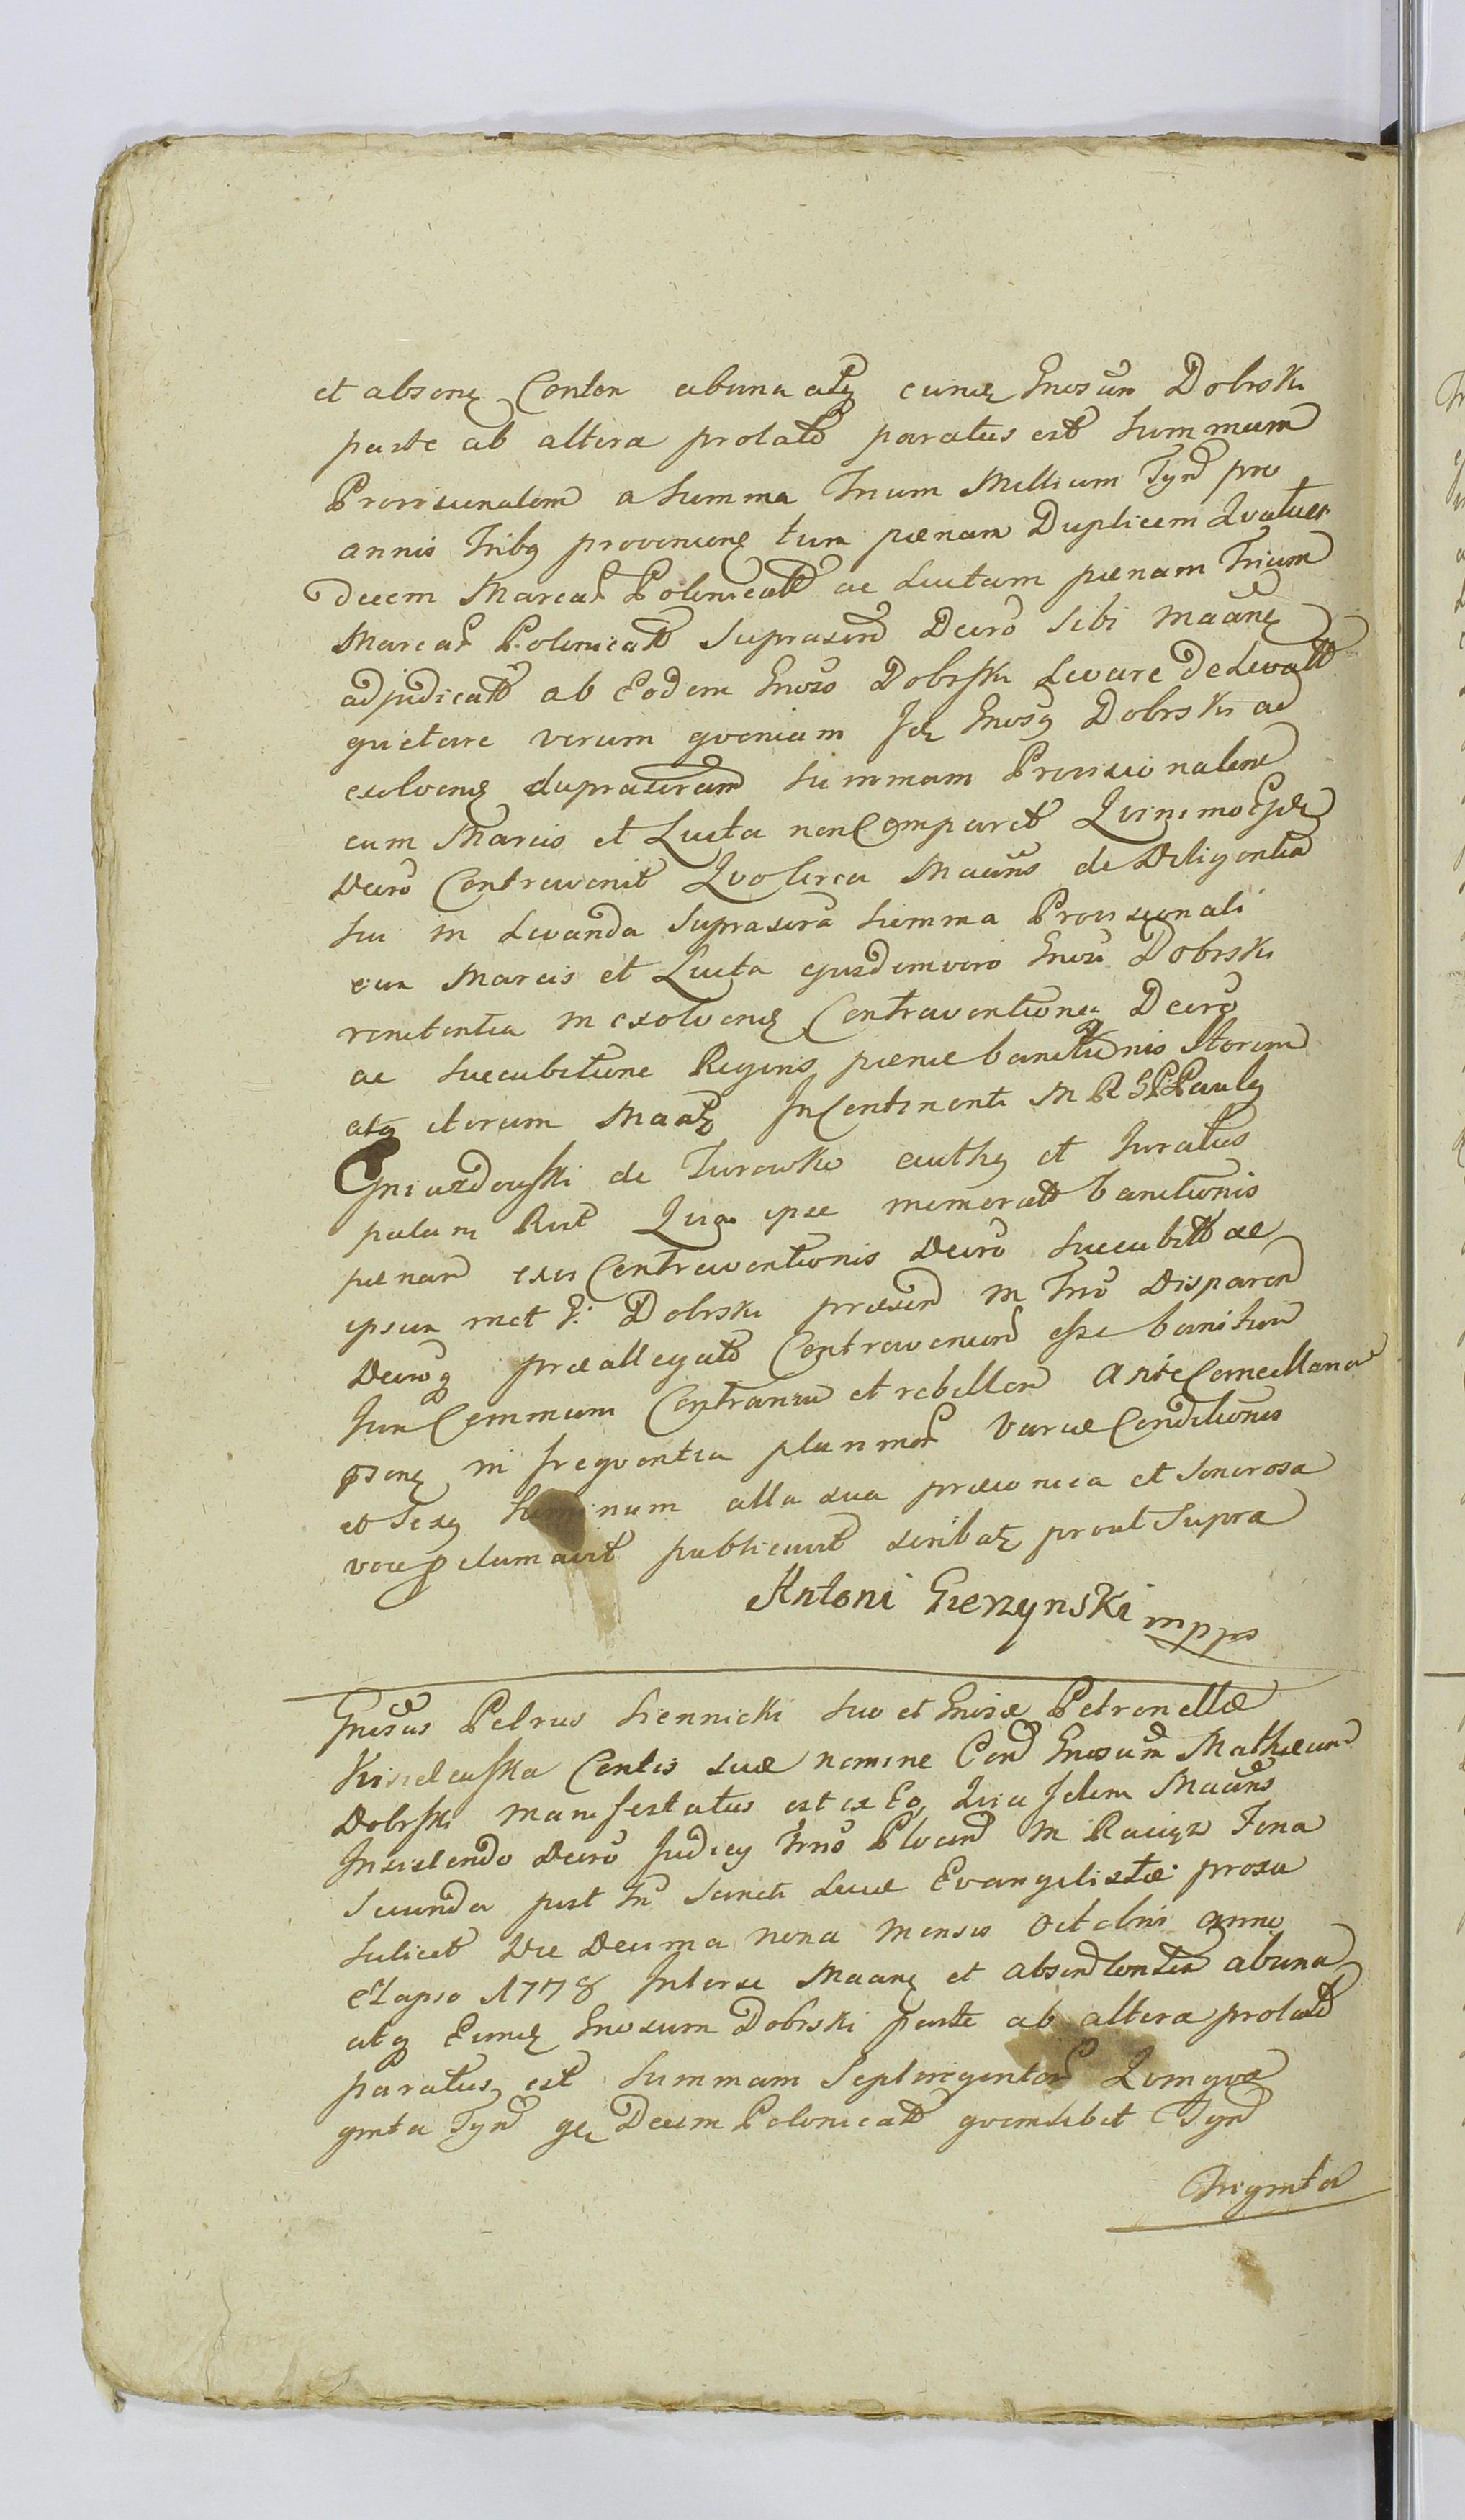 et absenq Conten abuna atq eundz Gnosum Dobrski
parte ab altera prolato paratus est Summam
Provisionalem a Summa Trium Millium Tynf pro
annis Tribq provenienq tum pænam Duplicem Quatuor
decem Marcar Polonicatt ac Luctam pænam Trium
Marcar Polonicatt Suprascrip Decro Sibi Maanq
adjudicatt ab Eodem Gnoso Dobrski Levare de Levatt
quietare verum quoniam Idz Gnosq Dobrski ad
exolvenq Suprascriptam Summam Provisionalem
cum Marcis et Lucta non Comparet Quinimo
Decro Contravenit Quo circa Maans de Diligentia
Sui in Levanda Suprascra Summa Provisionali
cum Marcis et Lucta ejusdemvero Gnosi Dobrski
renitentia in exolvenq Contraventioneq Decro
ac Succubitione Regens pænæ banitionis Iterum
atq iterum Incontinenti M R Paulq
Gniazdowski de Turowko authq et Juratus
palam Rect Quia ipse memoratt banitionis
pænam exvi Contraventionis Decro Succubitt ac
ipsum met G: Dobrski præsen in Trno Disparen
Decroq præallegato Contravenien esse banitum
Juri Commum Contrarium et rebellem Ante Cancellariam
psenq in frequentia plurimor variæ Conditionis
et Sexq hominum alta sua præconica et Sonorosa
voce pclamavit publicavit scribatz prout Supra
Antoni Gierzynski mpps
Gnosus Petrus Siennicki Suo et Gnosæ Petronellæ
Kisielewska Contis suæ nomine Con Gnosum Mathæum
Dobrski manifestatus est ex Eo, Quia Idem Maans
Insistendo Decro Judicy Trns Plocen in Raciąz Feria
Secunda post fn Sancti Lucæ Evangelistæ proxa
Scilicet Die Decima nona mensis octobris anno
elapso 1778 Inter se Maanq et absen Conten abuna
atq Eundz Gnosum Dobrski parte ab altera prolato
paratus est Summam Septingentor Quinqua
ginta Tynf gr Decem Polonicatt quemlibet Tynf
Triginta